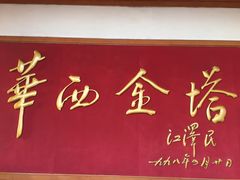 華西金塔
江澤民
一九九八年四月廿日